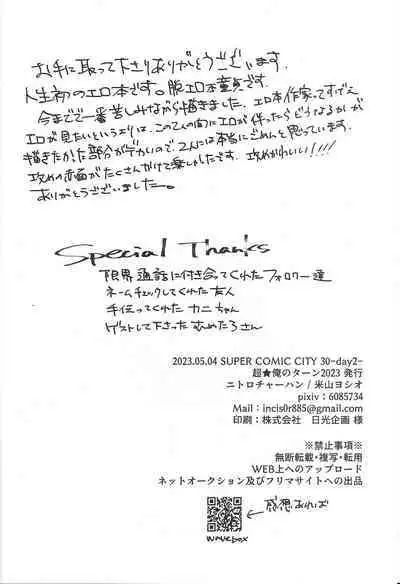 お手に取って下さりありがとうございます。
人生初のエロ本です。脱エロ本童貞です。
今までで一番苦しみながら描きました。エロ本作家ってすげえ
エロが見たいというよりは、この2人の間にエロが伴ったらどうなるかが
描きたかった部分がデカいので、2人には本当にごめんと思っています。
攻めの赤面がたくさんかけて楽しかったです。攻めかわいい!!!!
ありがとうございました。
Special Thanks
限界通話に付き合ってくれたフォロワー達
ネームチェックしてくれた友人
手伝ってくれたカニちゃん
ゲストして下さったむめたろさん
2023.05.04 SUPER COMIC CITY 30-day2-
超★俺のターン2023 発行
ニトロチャーハン / 米山ヨシオ
pixiv：6085734
Mail：incis0r885@gmail.com
印刷：株式会社　日光企画 様
※禁止事項※
無断転載・複写・転用
WEB上へのアップロード
ネットオークション及びフリマサイトへの出品
感想あれば
wavebox